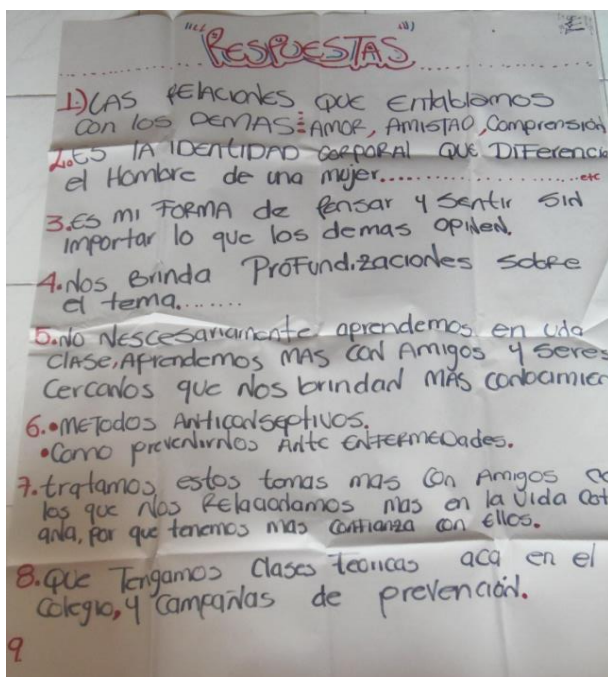 "RESPUESTAS"
1.) LAS RELACIONES QUE Entablamos
con los DEMAS: AMOR, AMISTAD, Comprensión
2. ES LA IDENTIDAD CORPORAL QUE DIFERENCIA
el Hombre de una mujer..........................etc
3. ES mi FORMA de Pensar y Sentir SIN
importar lo que los demas OPINEN.
4. NOS BRINDA PROFUNDIZACIONES SOBRE
el tema........
5. NO NESCESARIAMENTE aprendemos en una
CLASE, APRENDEMOS MAS CON Amigos y Seres
Cercanos que NOS brindan MAS
6. • METODOS ANTICONSEPTIVOS.
• Como prevenirnos Ante ENFERMEDADES.
7. tratamos estos temas mas Con Amigos
los que NOS RELACIONAMOS mas en la vida
por que tenemos mas CONFIANZA con Ellos.
8. QUE Tengamos Clases teoricas aca en el
colegio, y Campañas de prevención.
9